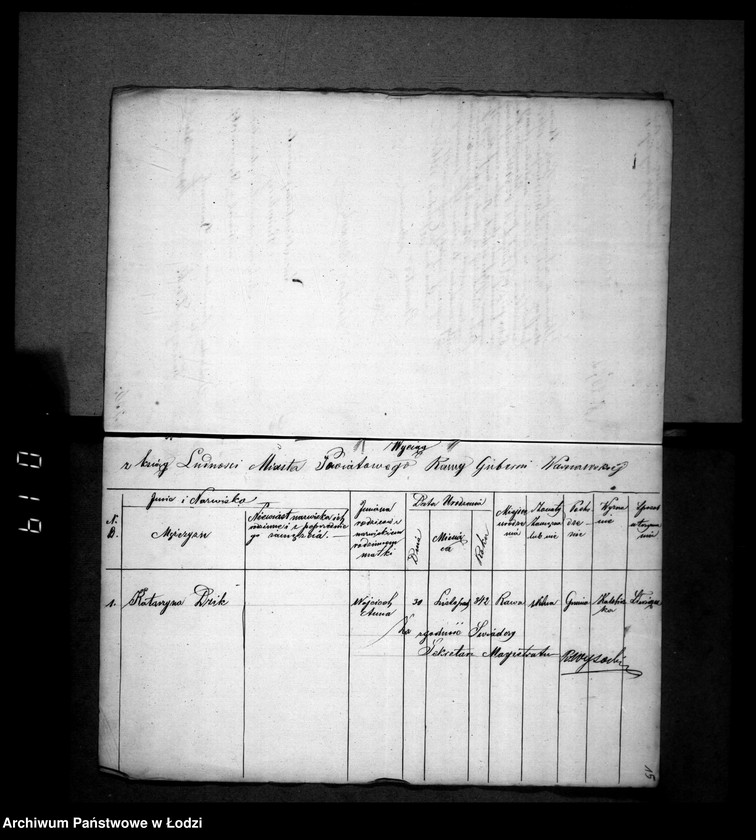 Wyciąg
z księg Ludności Miasta Powiatowego Rawy Gubernii Warszawskiej
N.
B.
Jmie i Nazwisko
Męszczyzn
Niewiast nazwisko ich
i z poprzednie
go zamęścia.
Jmiona
rodziców i
nazwisko
matki
Data Urodzenia
Dnia
Miesią
ca
Roku
Miejsce
urodze
nia
Żonaty
zamężna
lub nie
Pocho
dze
nie
Wyzna
nie
Sposób
utrzyma
nia
1.
Katarzyna Dzik
Wojciech
Anna
30
Listopad
842
Rawa
Gmina
Katolic
ka
Za zgodność Świadczy
Sekretarz Magistratu
15
610
Archiwum Państwowe w Łodzi